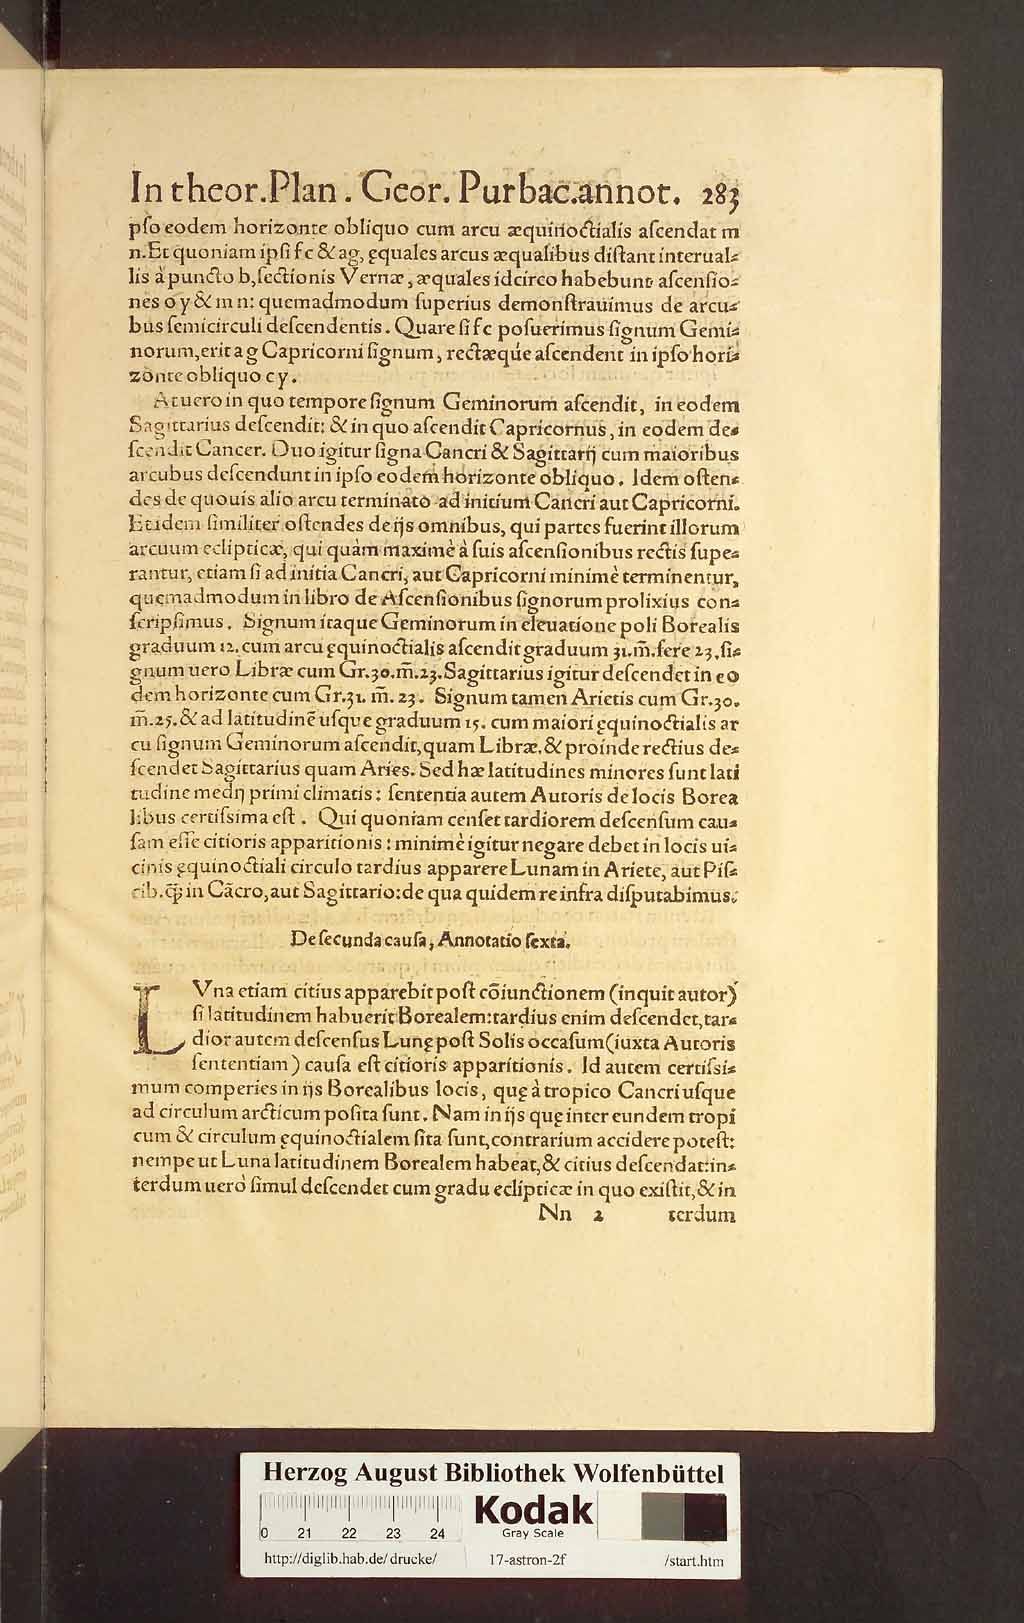 In theor. Plan. Geor. Purbac. annot. 283
pſo eodem horizonte obliquo cum arcu æquinoctialis aſcendat m
n. Et quoniam ipſi f c & ag, ęquales arcus æqualibus diſtant interual⸗
lis à puncto b, ſectionis Vernæ, æquales idcirco habebunt aſcenſio⸗
nes o y & m n: quemadmodum ſuperius demonſtrauimus de arcu⸗
bus ſemicirculi deſcendentis. Quare ſi f c poſuerimus ſignum Gemi⸗
norum, erit a g Capricorni ſignum, rectæq́ue aſcendent in ipſo hori⸗
zonte obliquo c y.
At uero in quo tempore ſignum Geminorum aſcendit, in eodem
Sagittarius deſcendit: & in quo aſcendit Capricornus, in eodem de⸗
ſcendit Cancer. Duo igitur ſigna Cancri & Sagittarij cum maioribus
arcubus deſcendunt in ipſo eodem horizonte obliquo. Idem oſten⸗
des de quouis alio arcu terminato ad initium Cancri aut Capricorni.
Et idem ſimiliter oſtendes de ijs omnibus, qui partes fuerint illorum
arcuum eclipticæ, qui quàm maximè à ſuis aſcenſionibus rectis ſupe⸗
rantur, etiam ſi ad initia Cancri, aut Capricorni minimè terminentur,
quemadmodum in libro de Aſcenſionibus ſignorum prolixius con⸗
ſcripſimus. Signum itaque Geminorum in eleuatione poli Borealis
graduum 12. cum arcu ęquinoctialis aſcendit graduum 31. m̃. fere 23. ſi⸗
gnum uero Libræ cum Gr. 30. m̃. 23. Sagittarius igitur deſcendet in eo
dem horizonte cum Gr. 31. m̃. 23. Signum tamen Arietis cum Gr. 30.
m̃. 25. & ad latitudinẽ uſque graduum 15. cum maiori ęquinoctialis ar
cu ſignum Geminorum aſcendit, quam Libræ. & proinde rectius de⸗
ſcendet Sagittarius quam Aries. Sed hæ latitudines minores ſunt lati
tudine medij primi climatis: ſententia autem Autoris de locis Borea
libus certiſsima eſt. Qui quoniam cenſet tardiorem deſcenſum cau⸗
ſam eſſe citioris apparitionis: minimè igitur negare debet in locis ui⸗
cinis ęquinoctiali circulo tardius apparere Lunam in Ariete, aut Piſ⸗
cib. ꝙ̃ in Cãcro, aut Sagittario: de qua quidem re infra diſputabimus.
De ſecunda cauſa, Annotatio ſexta.
LVna etiam citius apparebit poſt cõiunctionem (inquit autor)
ſi latitudinem habuerit Borealem: tardius enim deſcendet, tar⸗
dior autem deſcenſus Lunę poſt Solis occaſum (iuxta Autoris
ſententiam) cauſa eſt citioris apparitionis. Id autem certiſsi⸗
mum comperies in ijs Borealibus locis, quę à tropico Cancri uſque
ad circulum arcticum poſita ſunt. Nam in ijs quę inter eundem tropi
cum & circulum ęquinoctialem ſita ſunt, contrarium accidere poteſt:
nempe ut Luna latitudinem Borealem habeat, & citius deſcendat: in⸗
terdum uerò ſimul deſcendet cum gradu eclipticæ in quo exiſtit, & in
Nn 2 terdum
Herzog August Bibliothek Wolfenbüttel
0 21 22 23 24
Kodak
Gray Scale
http://diglib.hab.de/drucke/ 17-astron-2f /start.htm